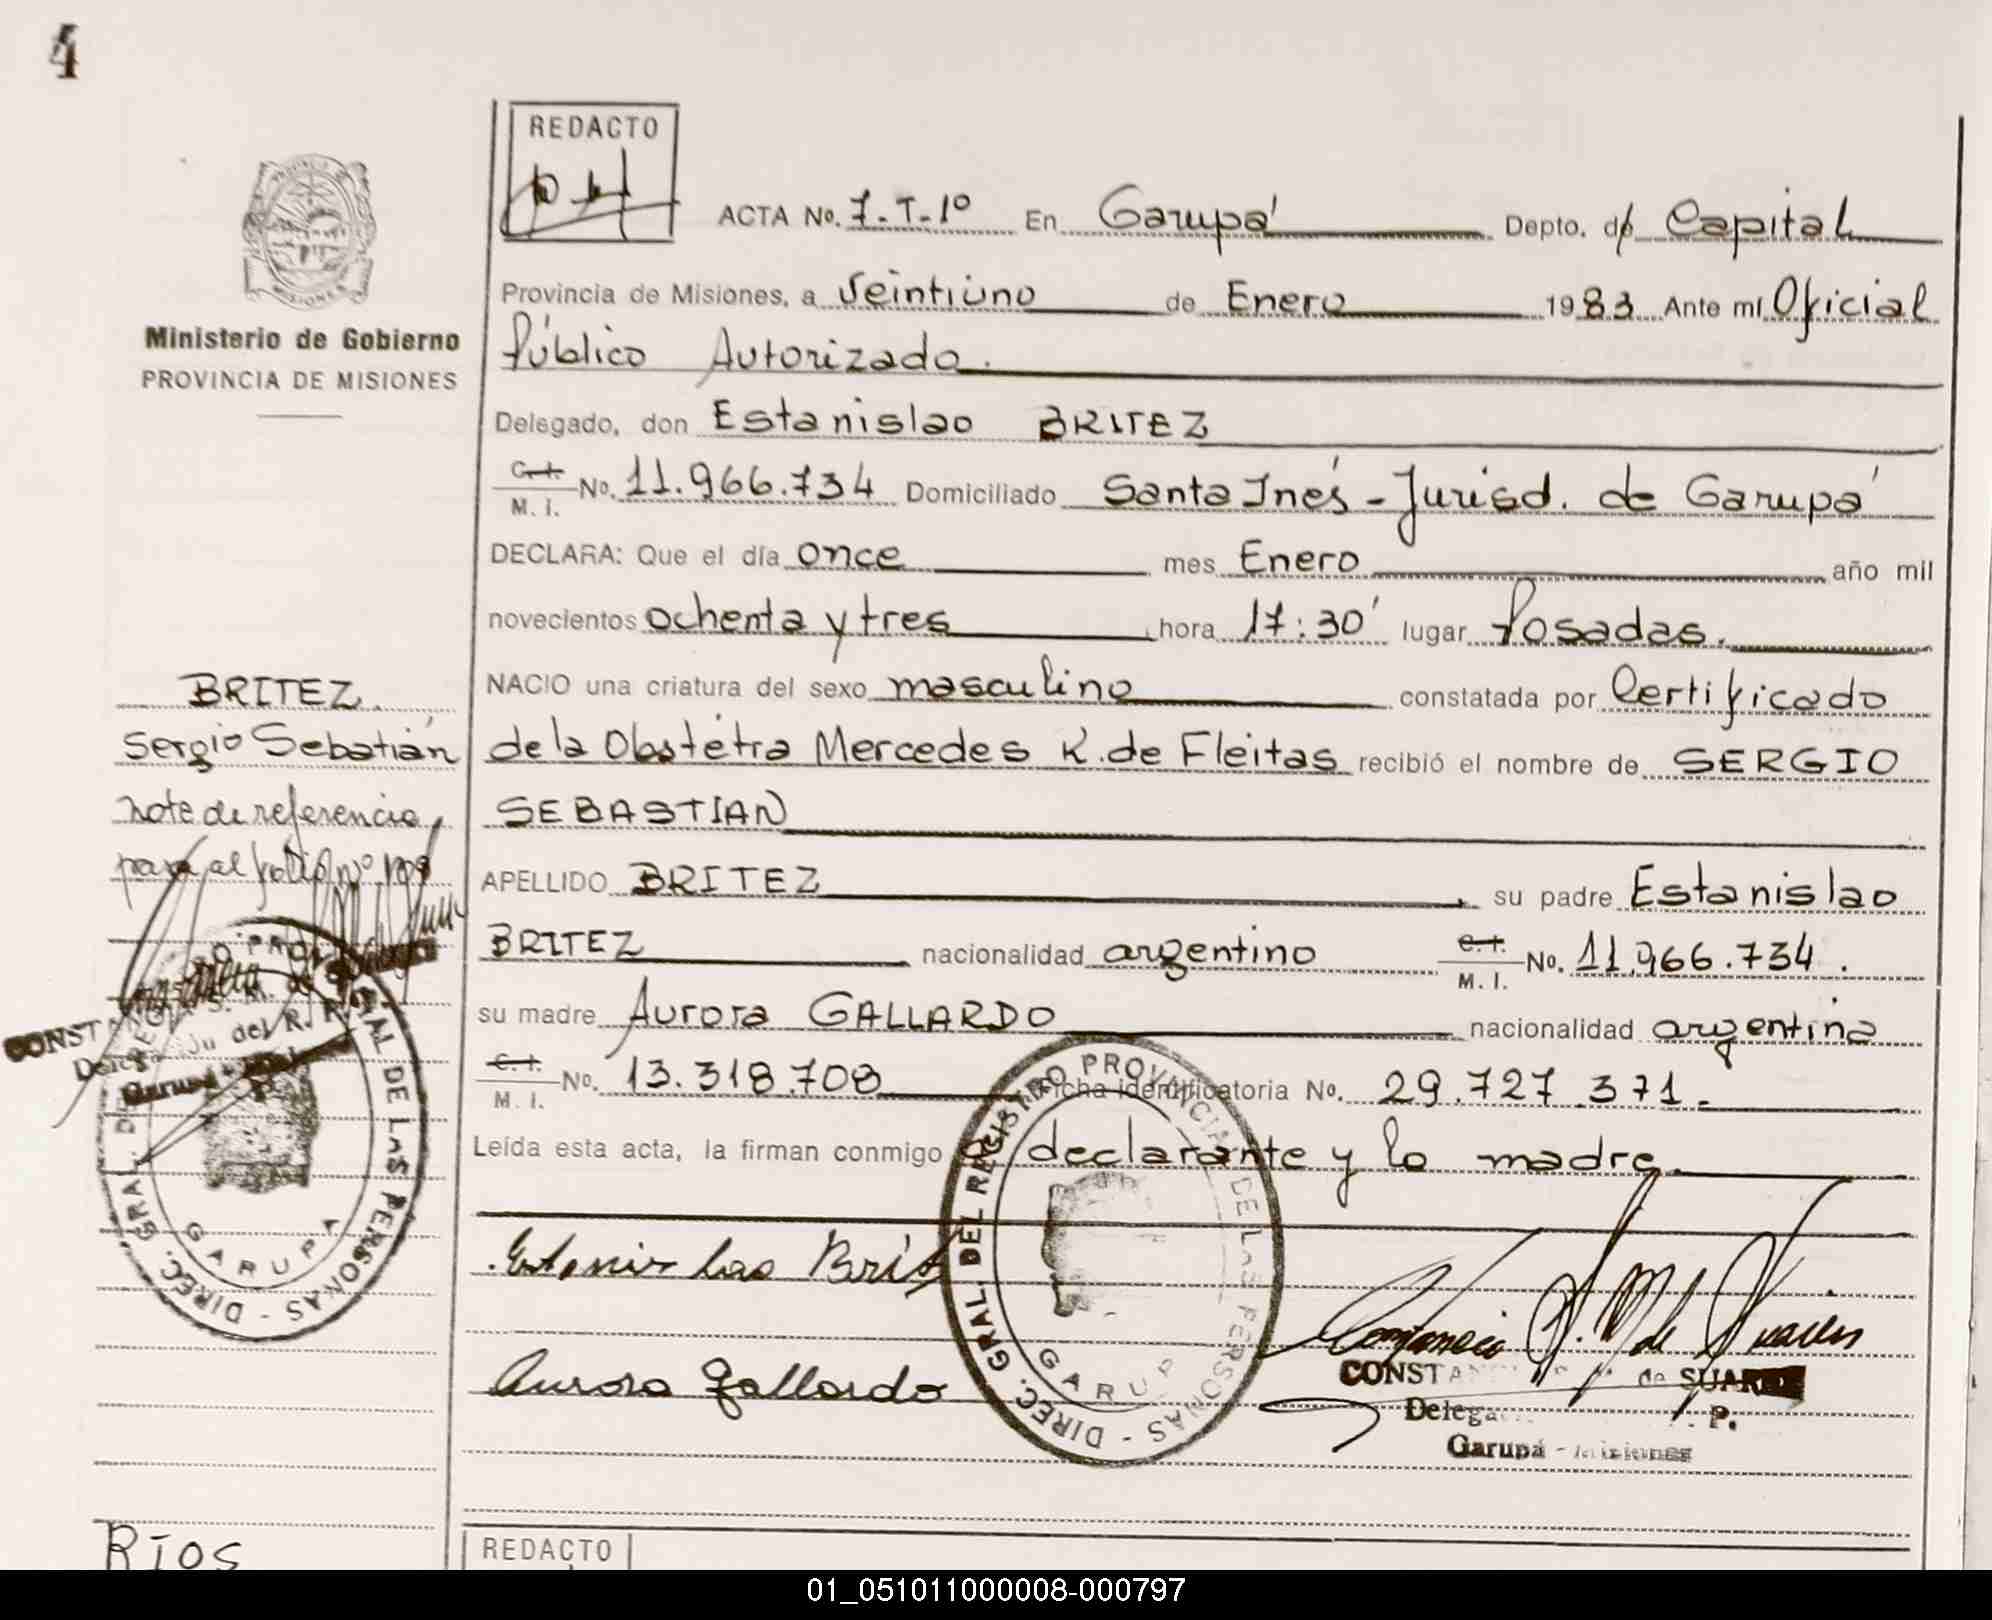 4
REDACTO
ACTA No. 7-T-1º En Garupá Depto. de Capital
PROVINCIA DE MISIONES
Provincia de Misiones, a Veintiuno de Enero 1983 Ante mí Oficial
Ministerio de Gobierno
PROVINCIA DE MISIONES
Público Autorizado.
Delegado, don Estanislao BRITEZ
C. I. M. I. No. 11.966.734 Domiciliado Santa Inés - Jurisd. de Garupá
DECLARA: Que el día once mes Enero año mil
novecientos ochenta y tres hora 17:30' lugar Posadas.
NACIO una criatura del sexo masculino constatada por Certificado
de la Obstétra Mercedes K. de Fleitas recibió el nombre de SERGIO
SEBASTIAN
APELLIDO BRITEZ su padre Estanislao
BRITEZ nacionalidad argentino C. I. M. I. No. 11.966.734.
su madre Aurora GALLARDO nacionalidad argentina
C. I. M. I. No. 13.318.708 Ficha identificatoria No. 29.727.371.
Leída esta acta, la firman conmigo el declarante y la madre.
BRITEZ.
Sergio Sebatián
Note de referencia
para al folio nº
CONSTANCIA
del R.
Garupá
DIREC. GRAL. DEL REGISTRO PROVINCIAL DE LAS PERSONAS -
GARUPA
Estanislao Brit
Aurora Gallardo
DIREC. GRAL. DEL REGISTRO PROVINCIAL DE LAS PERSONAS -
GARUP
Constancia de Suarez
CONSTAN de SUAREZ
Delega P.
Garupá - Misiones
Ríos
REDACTO
01_051011000008-000797